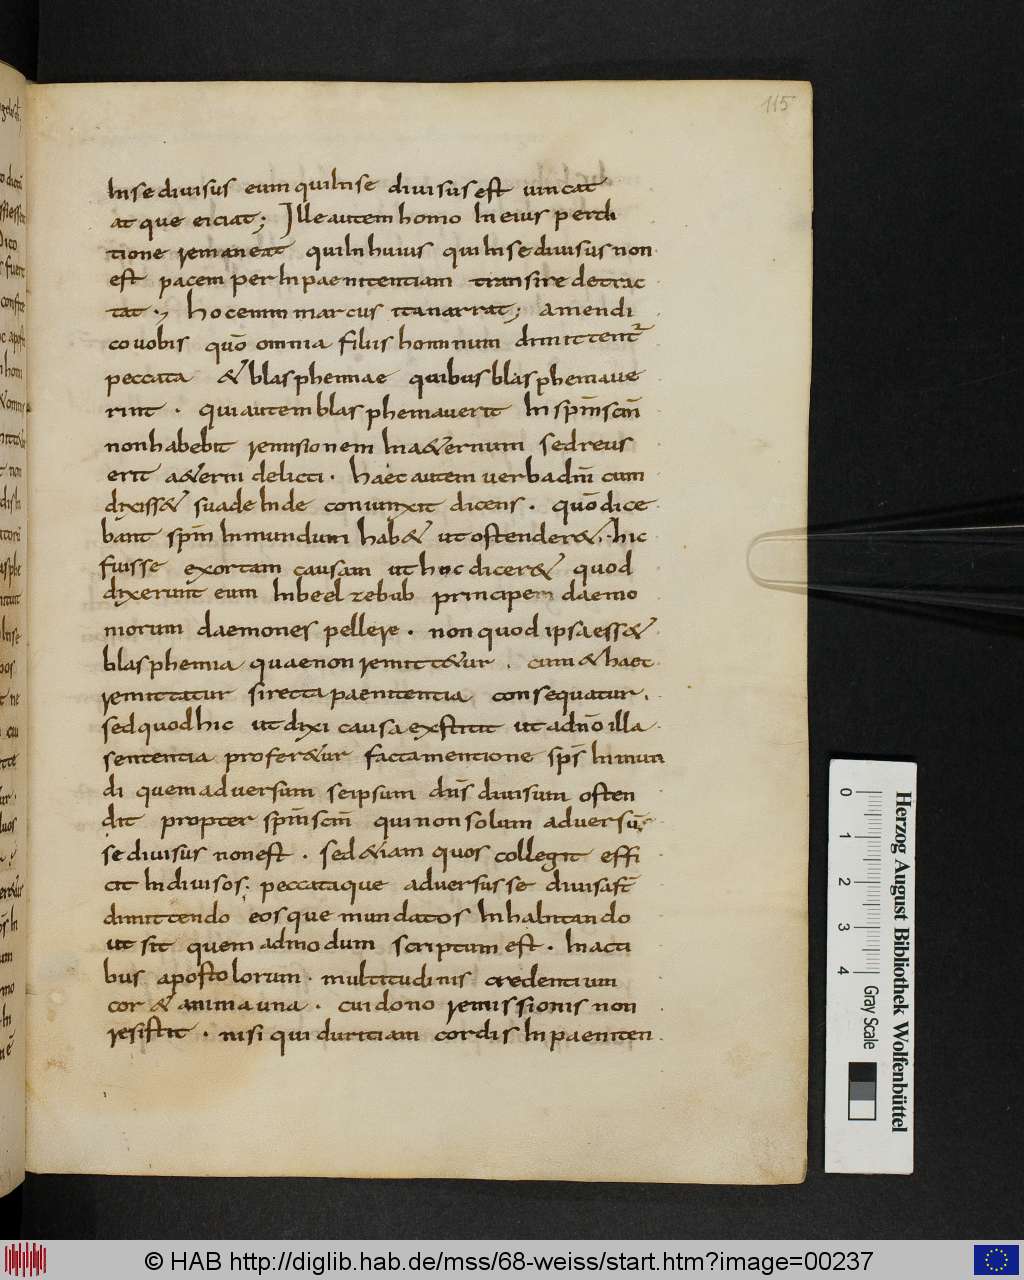 115
In se divisus eum qui in se divisus est vincat
atque eiciat; Ille autem homo In eius perdi
tione remaneat qui In huius qui in se divisus non
est pacem per In paenitentiam transire detrac
tat; hoc enim marcus ita narrat; amen di
co vobis quō omnia filiis hominum dimittent᷑
peccata & blasphemiae quibus blasphemave
rint. qui autem blasphemaverit In sp̄m sc̄m
non habebit remissionem In a&ernum sed reus
erit a&erni delicti. haec autem verba dn̄i cum
dixiss& suade Inde coniunxit dicens. quō dice
bant sp̄m Inmundum hab& ut ostender&. hic
fuisse exortam causam ut hoc dicer& quod
dixerunt eum In beelzebub principem daemo
niorum daemones pellere. non quod ipsa ess&
blasphemia quae non remitt&ur. cum & haec
remittatur si recta paenitentia consequatur.
sed quod hic ut dixi causa exstitit ut a dn̄o illa
sententia profer&ur facta mentione sp̄s Inmun
di quem adversum seipsum dn̄s divisum osten
dit propter sp̄m sc̄m qui non solum adversū
se divisus non est. sed &iam quos collegit effi
cit Indivisos; peccataque adversus se divisa st̄
dimittendo eosque mundatos Inhabitando
ut sit quem ad modum scriptum est. In acti
bus apostolorum. multitudinis credentium
cor & anima una. cui dono remissionis non
resistit. nisi qui duritiam cordis Inpaeniten
Herzog August Bibliothek Wolfenbüttel
0 1 2 3 4 Gray Scale
© HAB http://diglib.hab.de/mss/68-weiss/start.htm?image=00237